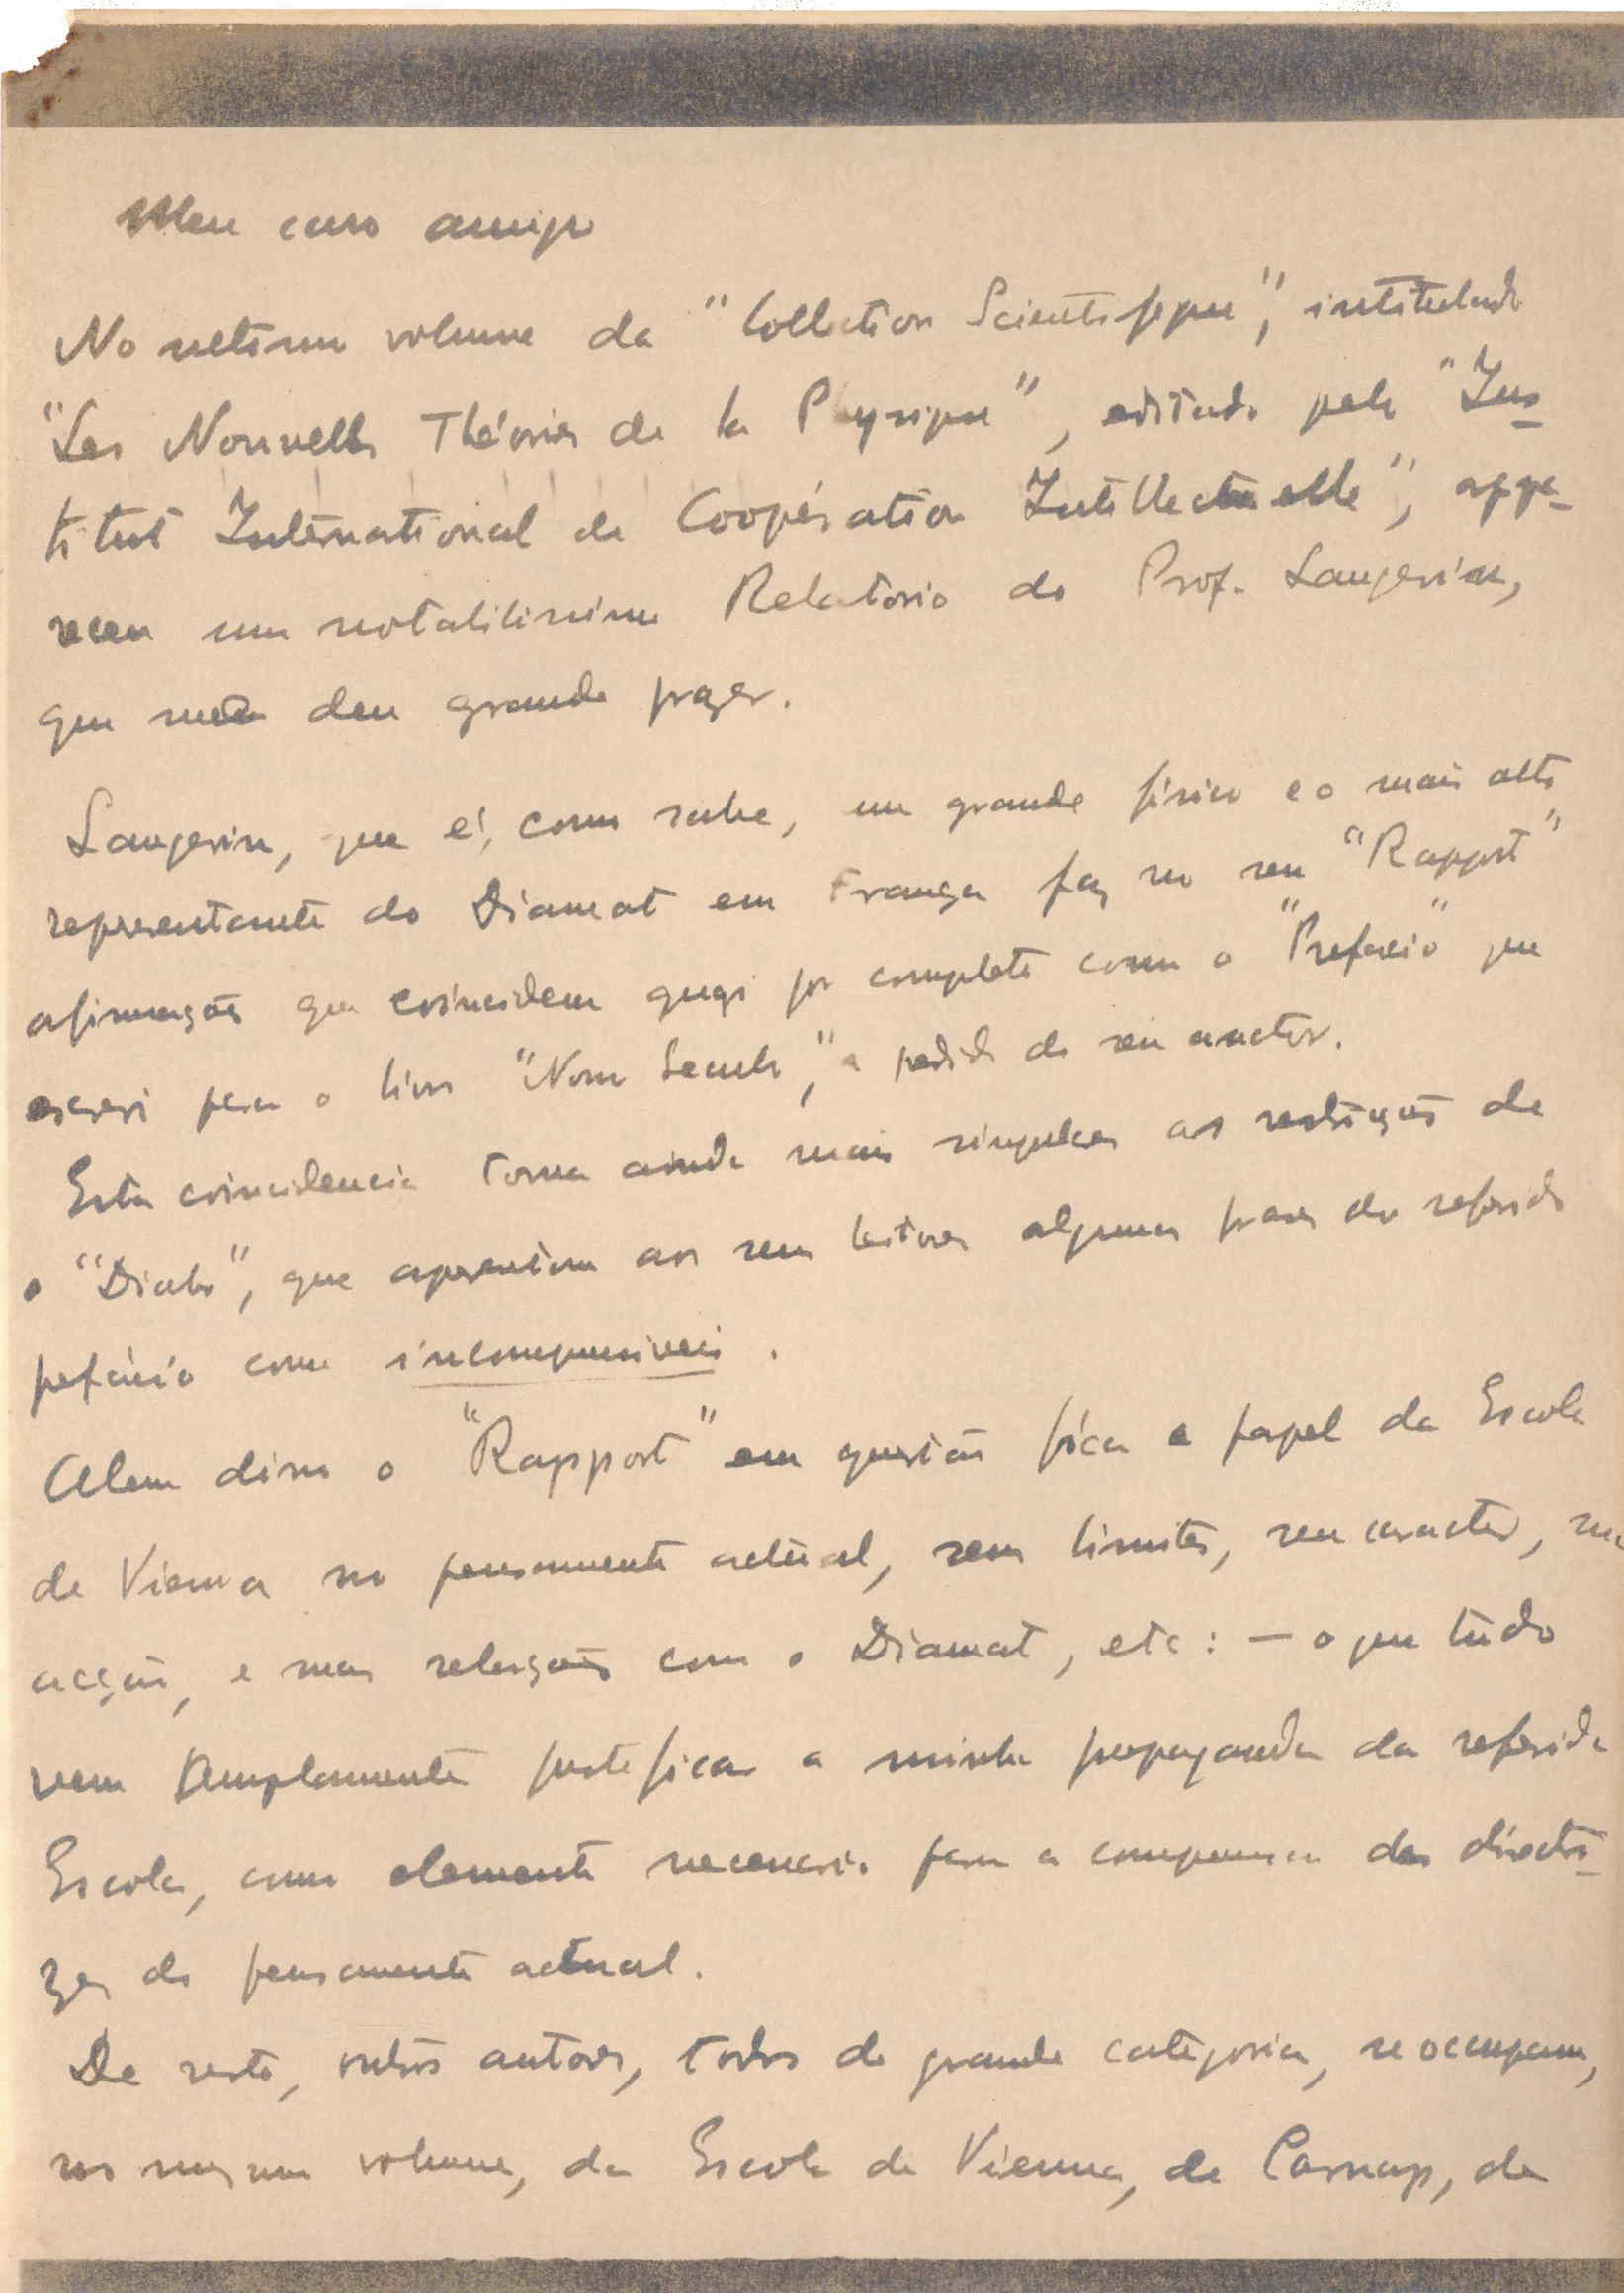 Meu caro amigo
No ultimo volume da "Collection Scientifique", intitulado
"Les Nouvelles Théories de la Physique", editado pelo "Ins-
titut International de Coopération Intellectuelle", appa-
receu um notabilissimo Relatorio do Prof. Langevin,
que me deu grande prazer.
Langevin, que é, como sabe, um grande físico e o mais alto
representante do Diamat em França faz no seu "Rapport"
afirmações que coincidem quazi por completo com o "Prefacio" que
escrevi para o livro "Novo Seculo", a pedido do seu auctor.
Esta coincidencia torna ainda mais singulares as restrições de
o "Diabo", que apresentam aos seus leitores algumas frases do referido
prefácio como incompreensiveis.
Alem disso o "Rapport" em questão fixa o papel da Escola
de Vienna no pensamento actual, seus limites, seu caracter, sua
acção, e suas relações com o Diamat, etc: – o que tudo
vem amplamente justificar a minha propaganda da referida
Escola, como elemento necessario para a compreensão das directri-
zes do pensamento actual.
De resto, outros autores, todos de grande categoria, se occupam,
no mesmo volume, da Escola de Vienna, de Carnap, de